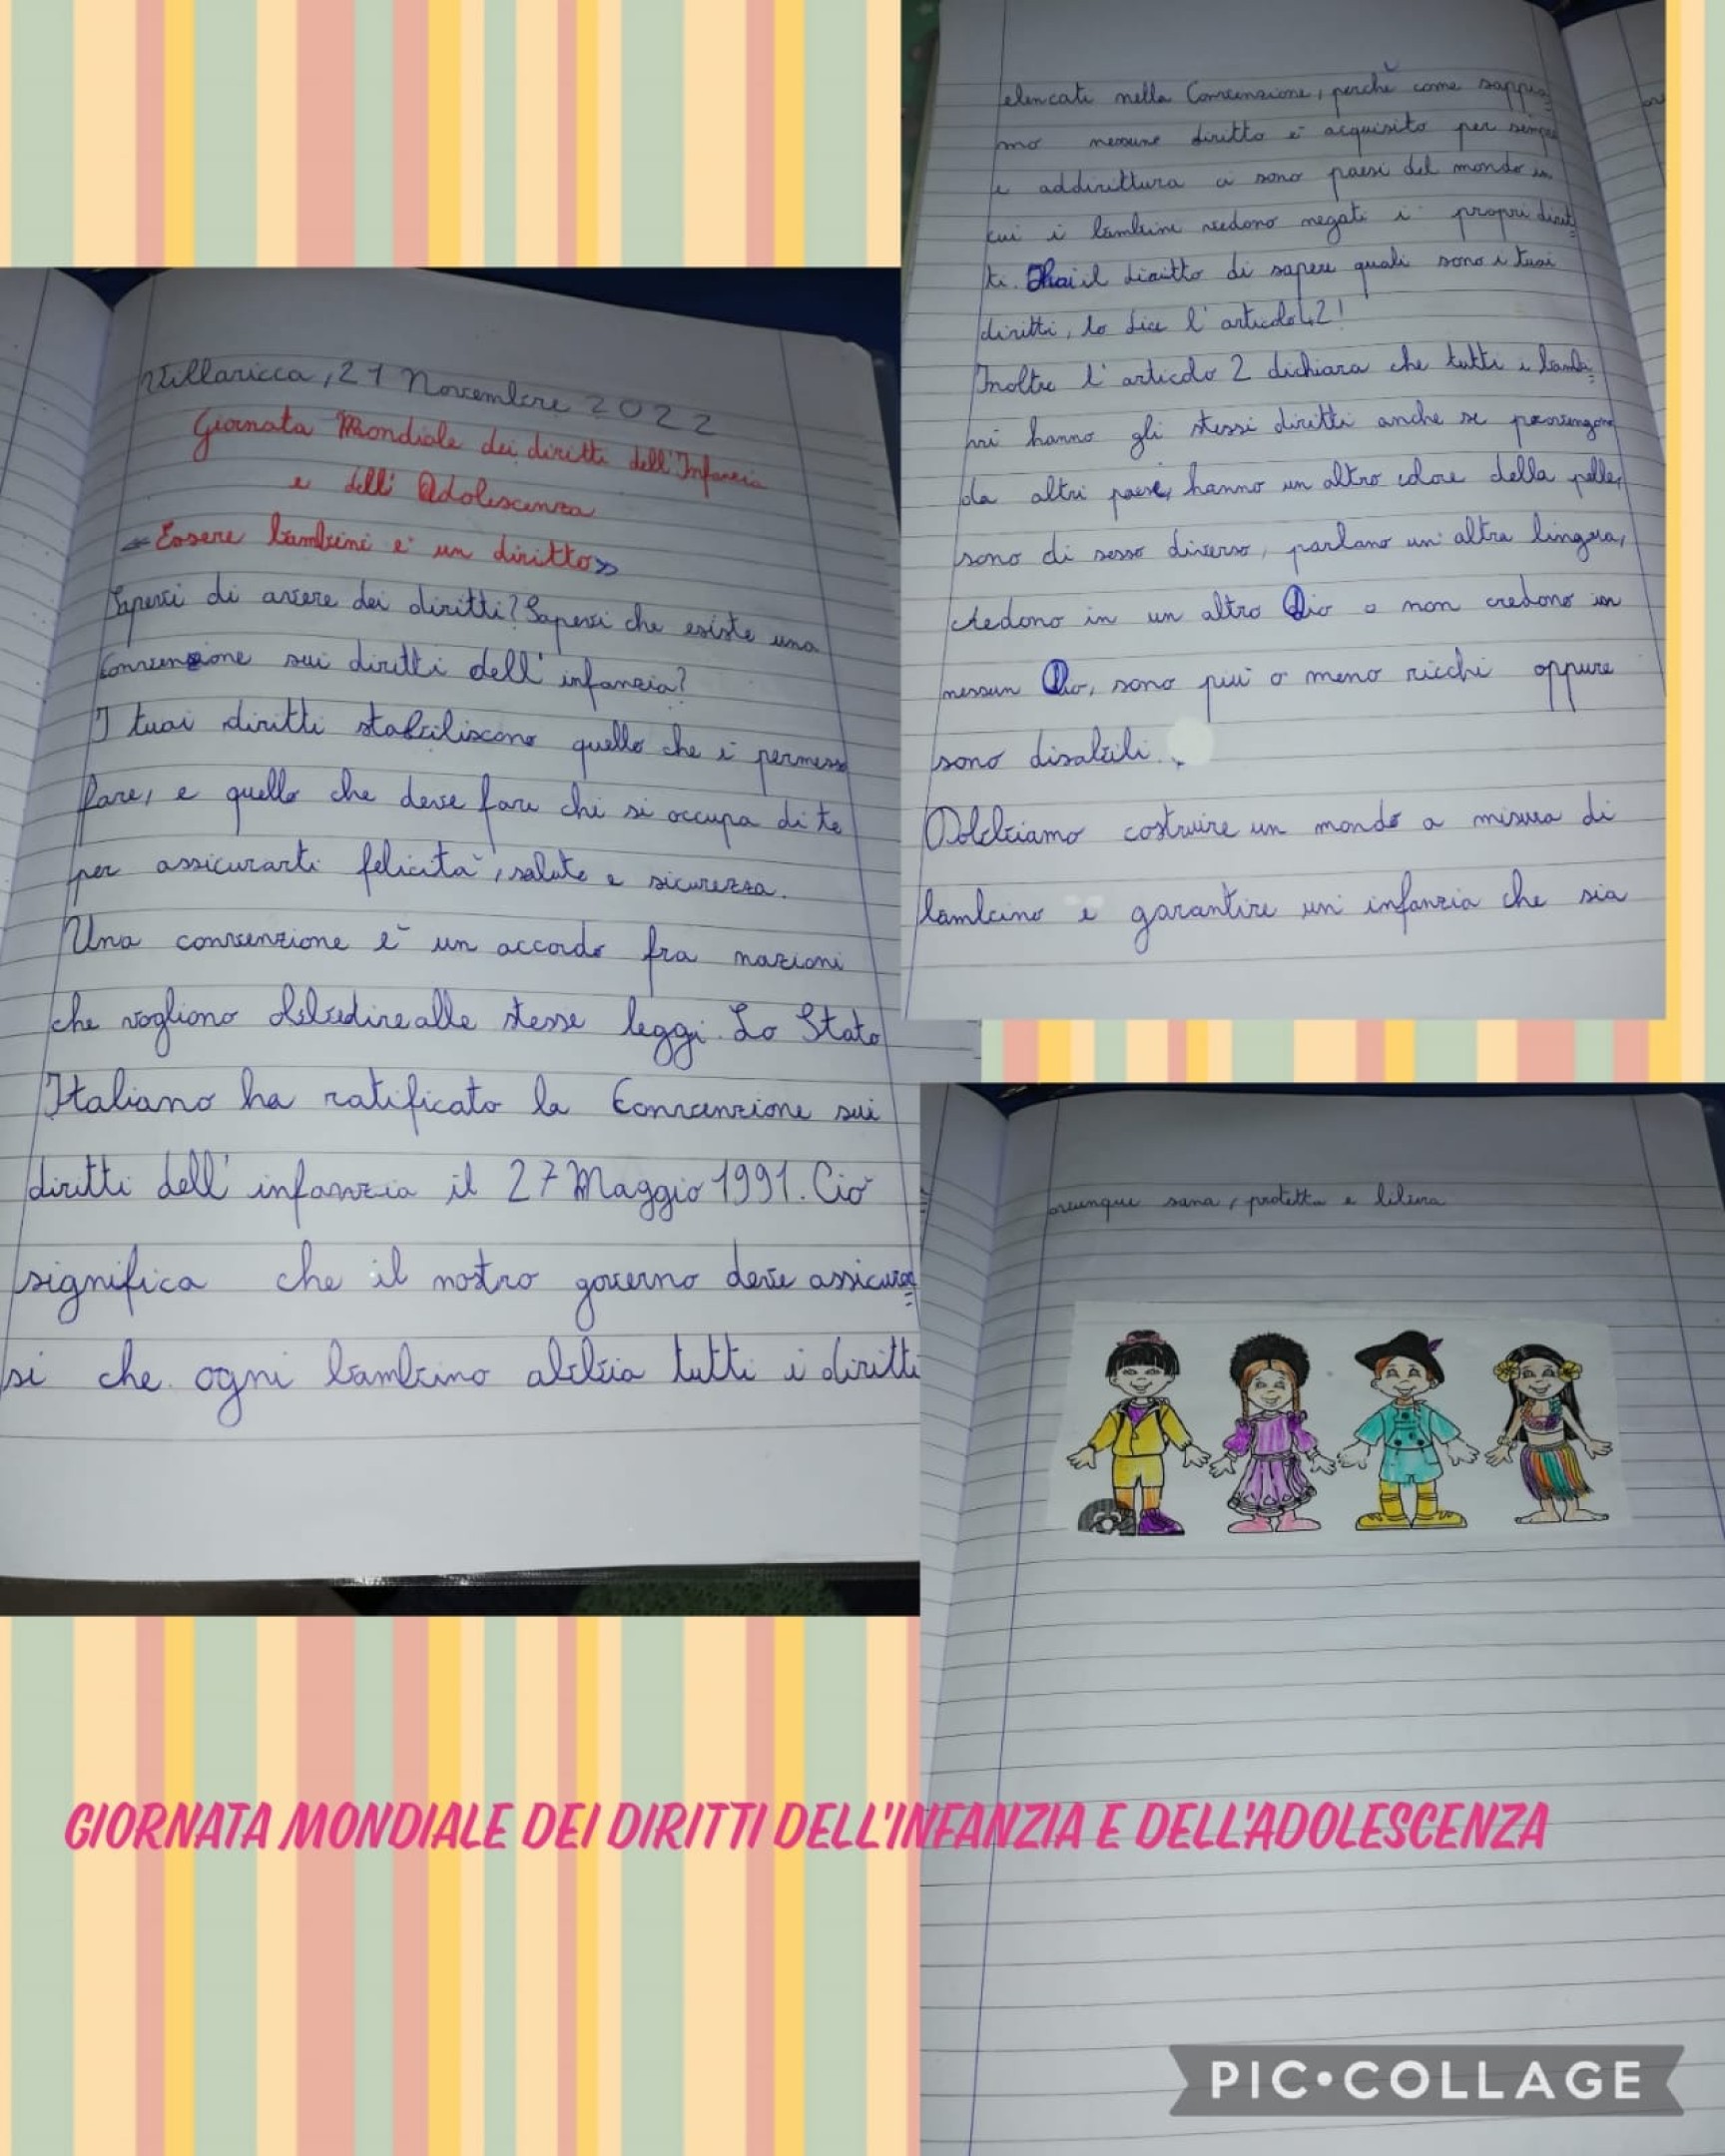 Villaricca, 21 Novembre 2022
Giornata Mondiale dei diritti dell'Infanzia
e dell' Adolescenza
«Essere bambini è un diritto»
Sapevi di avere dei diritti? Sapevi che esiste una
Convenzione sui diritti dell' infanzia?
I tuoi diritti stabiliscono quello che è permesso
fare, e quello che deve fare chi si occupa di te
per assicurarti felicità, salute e sicurezza.
Una convenzione è un accordo fra nazioni
che vogliono obbedire alle stesse leggi. Lo Stato
Italiano ha ratificato la Convenzione sui
diritti dell' infanzia il 27 Maggio 1991. Ciò
significa che il nostro governo deve assicurar=
si che ogni bambino abbia tutti i diritti
elencati nella Convenzione, perchè come sappia=
mo nessune diritto è acquisito per sempre
e addirittura ci sono paesi del mondo in
cui i bambini vedono negati i propri dirit=
ti. hai il diritto di sapere quali sono i tuoi
diritti, lo dice l' articolo 42!
Inoltre l' articolo 2 dichiara che tutti i bambi=
ni hanno gli stessi diritti anche se provengono
da altri paesi, hanno un altro colore della pelle,
sono di sesso diverso, parlano un' altra lingua,
credono in un altro Dio o non credono in
nessun Dio, sono più o meno ricchi oppure
sono disabili.
Dobbiamo costruire un mondo a misura di
bambino e garantire un' infanzia che sia
ovunque sana, protetta e libera
GIORNATA MONDIALE DEI DIRITTI DELL'INFANZIA E DELL'ADOLESCENZA
PIC•COLLAGE